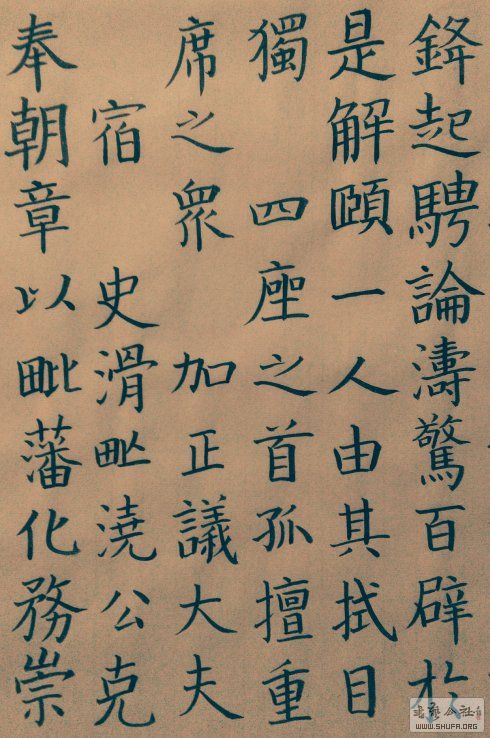 鋒起騁論濤驚百辟於
是解頤一人由其拭目
獨四座之首孤擅重
席之眾加正議大夫
宿史滑毗澆公克
奉朝章以毗藩化務崇
WWW.SHUFA.ORG